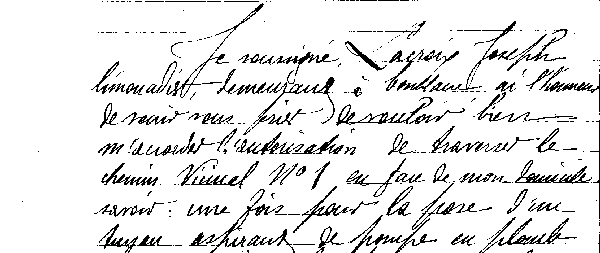 Je soussigné, Lacroix Joseph
limonadier, demeurant à ai l'honneur
de venir vous prier de vouloir bien
m'accorder l'autorisation de traverser le
chemin Vicinal N° 1 en face de mon domicile
savoir : une fois pour la pose d'un
tuyau aspirant de pompe en plomb